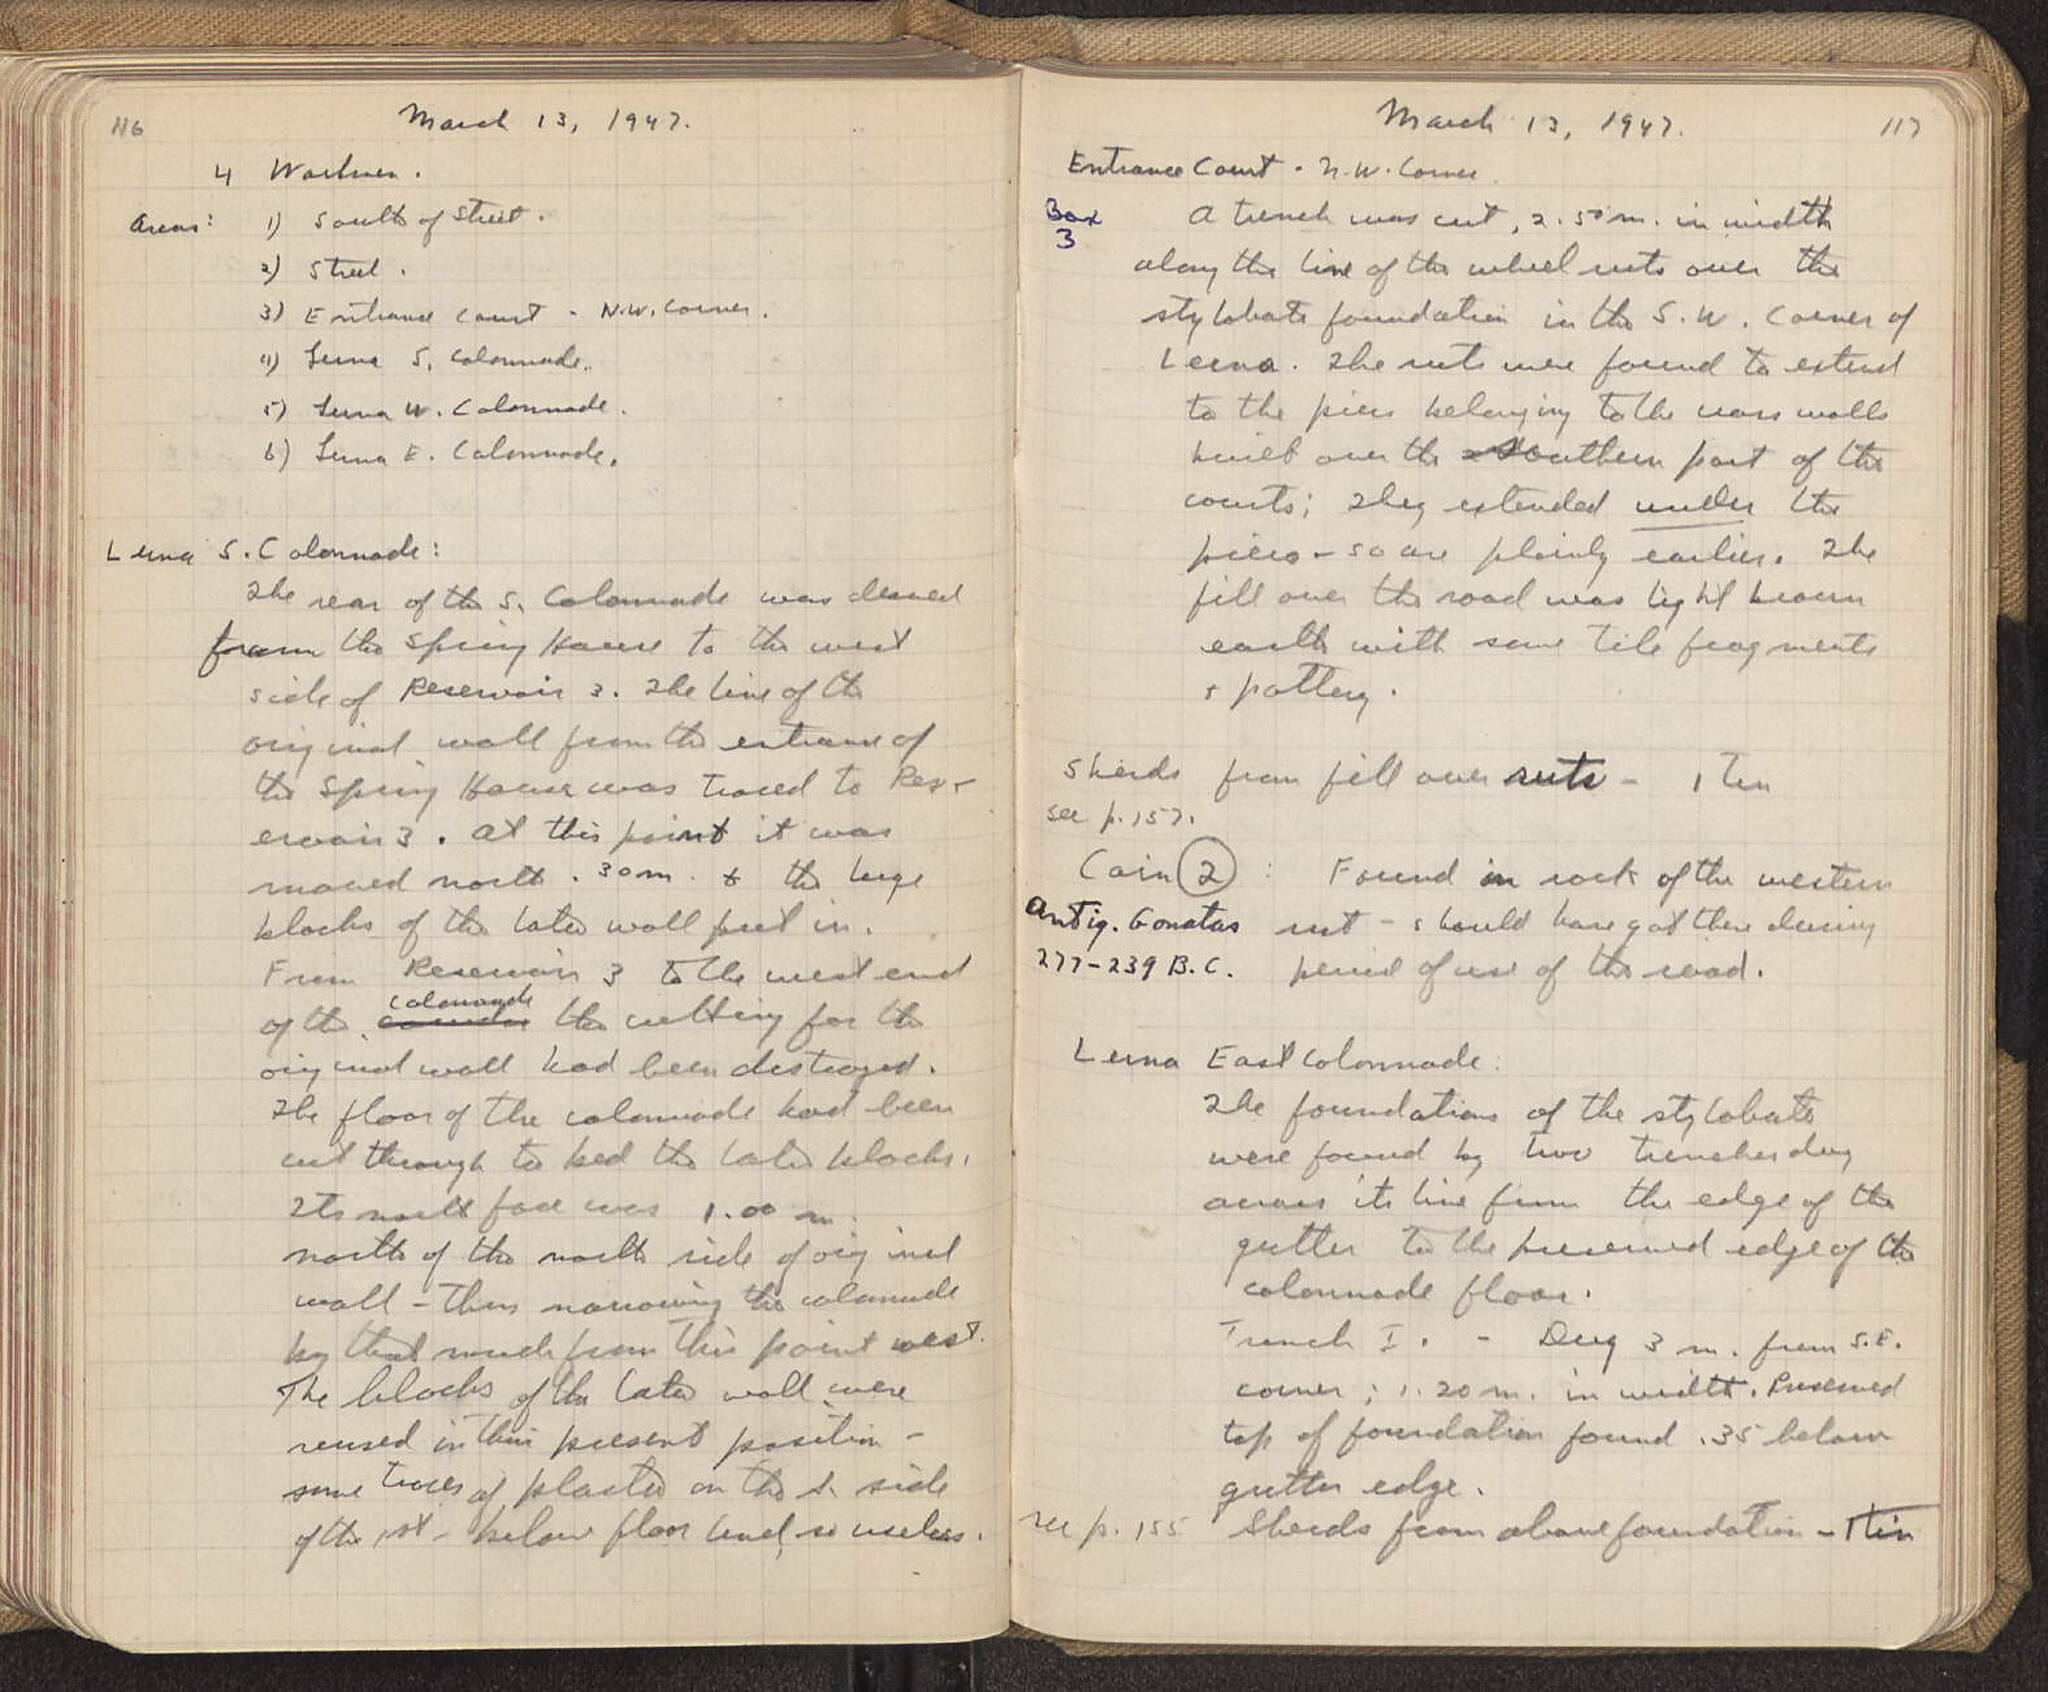 116
March 13, 1947.
4 Workmen.
Areas: 1) South of Street.
2) Street.
3) Entrance Court - N.W. Corner.
4) Lerna S. Colonnade.
5) Lerna W. Colonnade.
6) Lerna E. Colonnade.
Lerna S. Colonnade:
The rear of the S. Colonnade was cleared
from the Spring House to the west
side of Reservoir 3. The line of the
original wall from the entrance of
the Spring House was traced to Res-
ervoir 3. At this point it was
moved north .30 m. & the large
blocks of the later wall put in.
From Reservoir 3 to the west end
of the colonnade the cutting for the
original wall had been destroyed.
The floor of the colonnade had been
cut through to bed the later blocks.
Its north face was 1.00 m.
north of the north side of original
wall - thus narrowing the colonnade
by that much from this point west.
The blocks of the later wall were
reused in their present position -
some traces of plaster on the S. side
of the 1st - below floor level, so useless.
March 13, 1947.
117
Entrance Court - N.W. Corner
Box
3
A trench was cut, 2.50 m. in width
along the line of the wheel ruts over the
stylobate foundation in the S.W. Corner of
Lerna. The ruts were found to extend
to the piers belonging to the cross walls
built over the southern part of the
courts; They extended under the
piers - so are plainly earlier. The
fill over the road was light brown
earth with some tile fragments
+ pottery.
Sherds from fill over ruts - 1 Tin
see p. 157.
Coin 2 : Found in rock of the western
Antig. Gonatas rut - should have got there during
277-239 B.C. period of use of the road.
Lerna East Colonnade:
The foundations of the stylobate
were found by two trenches dug
across its line from the edge of the
gutter to the preserved edge of the
colonnade floor.
Trench I. - Dug 3 m. from S.E.
corner; 1.20 m. in width. Preserved
top of foundation found .35 below
gutter edge.
see p. 155 Sherds from above foundation - 1 tin